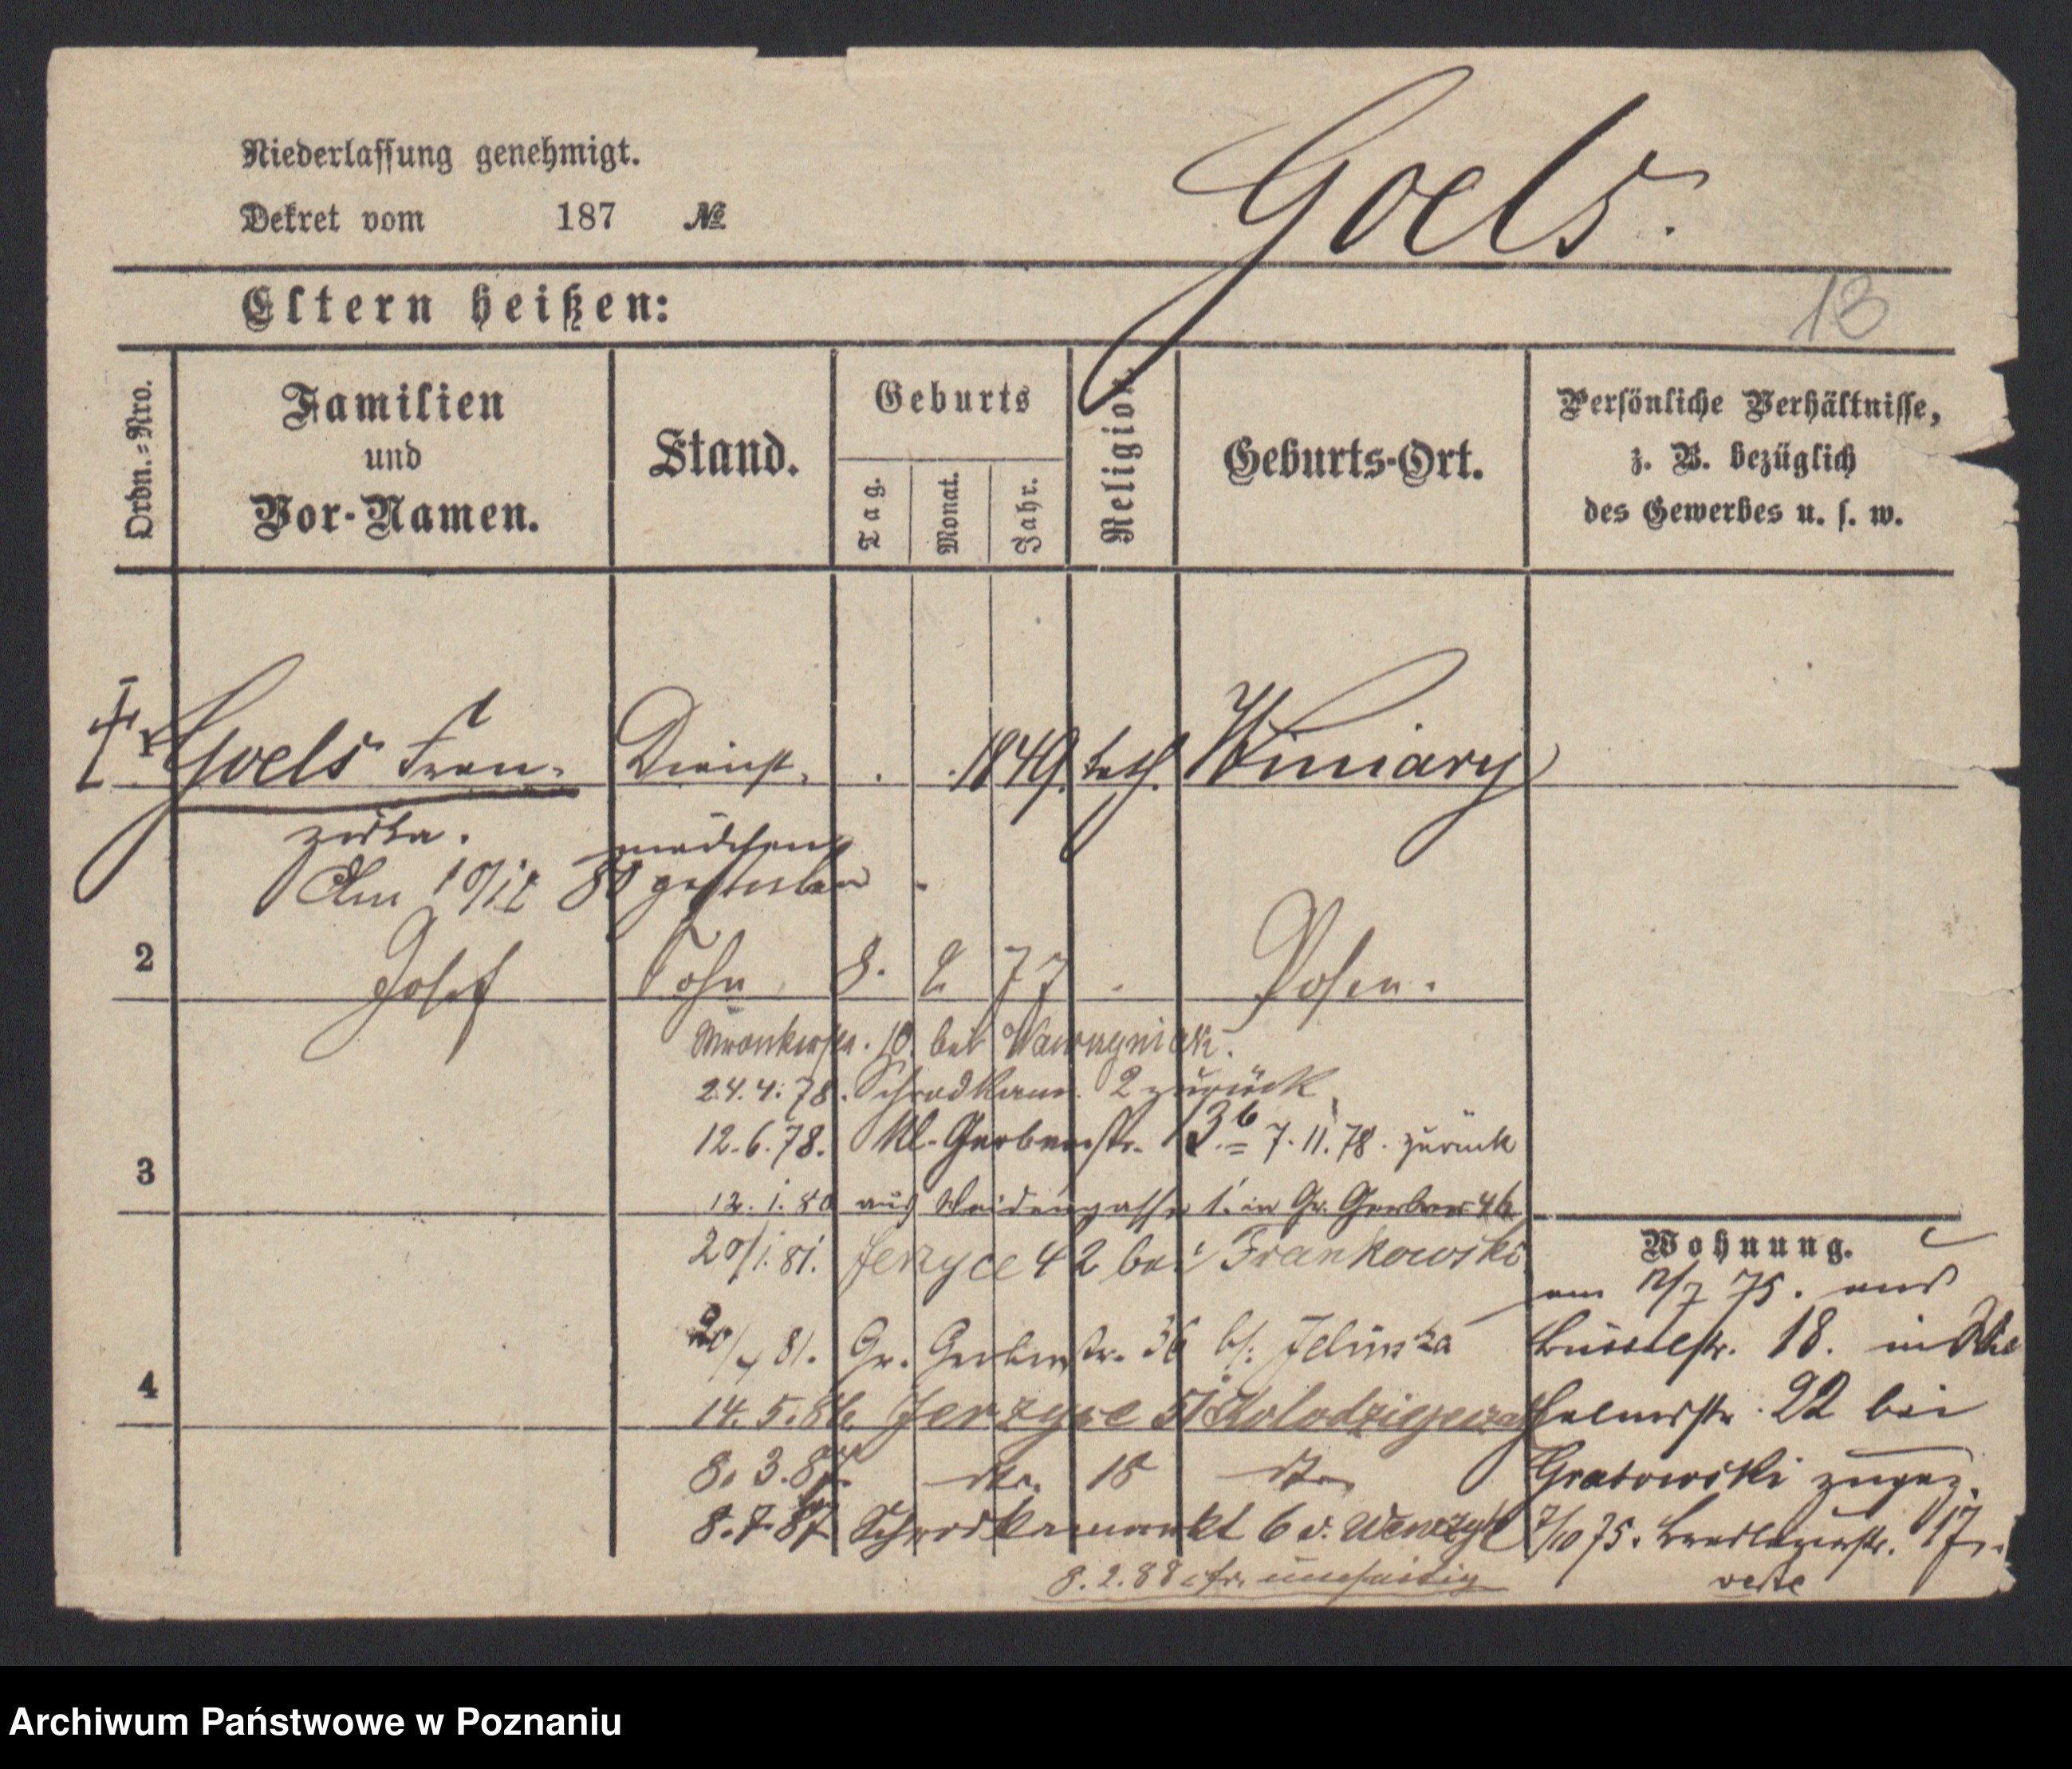 Niederlassung genehmigt.
Dekret vom 187 №
Goels.
Eltern heißen:
13
Ordn.-Nro.
Familien
und
Vor-Namen.
Stand.
Geburts
Tag.
Monat.
Jahr.
Religion.
Geburts-Ort.
Persönliche Verhältnisse,
z. B. bezüglich
des Gewerbes u. s. w.
1 Goels Fran- Dienst. 1849. kath. Winiary
ziska. mädchen
Am 10/12 80 gestorben
2 Josef Sohn 8. 2 77 Posen.
Wronkerstr. 10. bei Wawrzyniak.
24.4.78. Schrodkam. 2 zurück
12.6.78. Kl. Gerberstr. 13.b 7.11.78. zurück
3
12.1.80 aus Weidengasse 1. in Gr. Gerber 46
20/1.81. Jerzyce 42 bei Frankowski
Wohnung.
am 12/7 75. aus
20/4 81. Gr. Gerberstr. 36 b/. Jelinska
str. 18. in
4
14.5.86. Jerzyce 51
str. 22 bei
8.3.87. dto. 18 dto.
Gratowski zugez.
8.7.87 Schrodkamarkt 6 b.
7/10 75. str. 17.
8.2.88 cfr.
verte
Archiwum Państwowe w Poznaniu